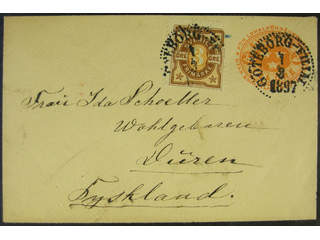 GÖTEBORG
GÖTEBORG
1897
Frau Ida Schoeller
Wohlgeboren
Düren
Tyskland.